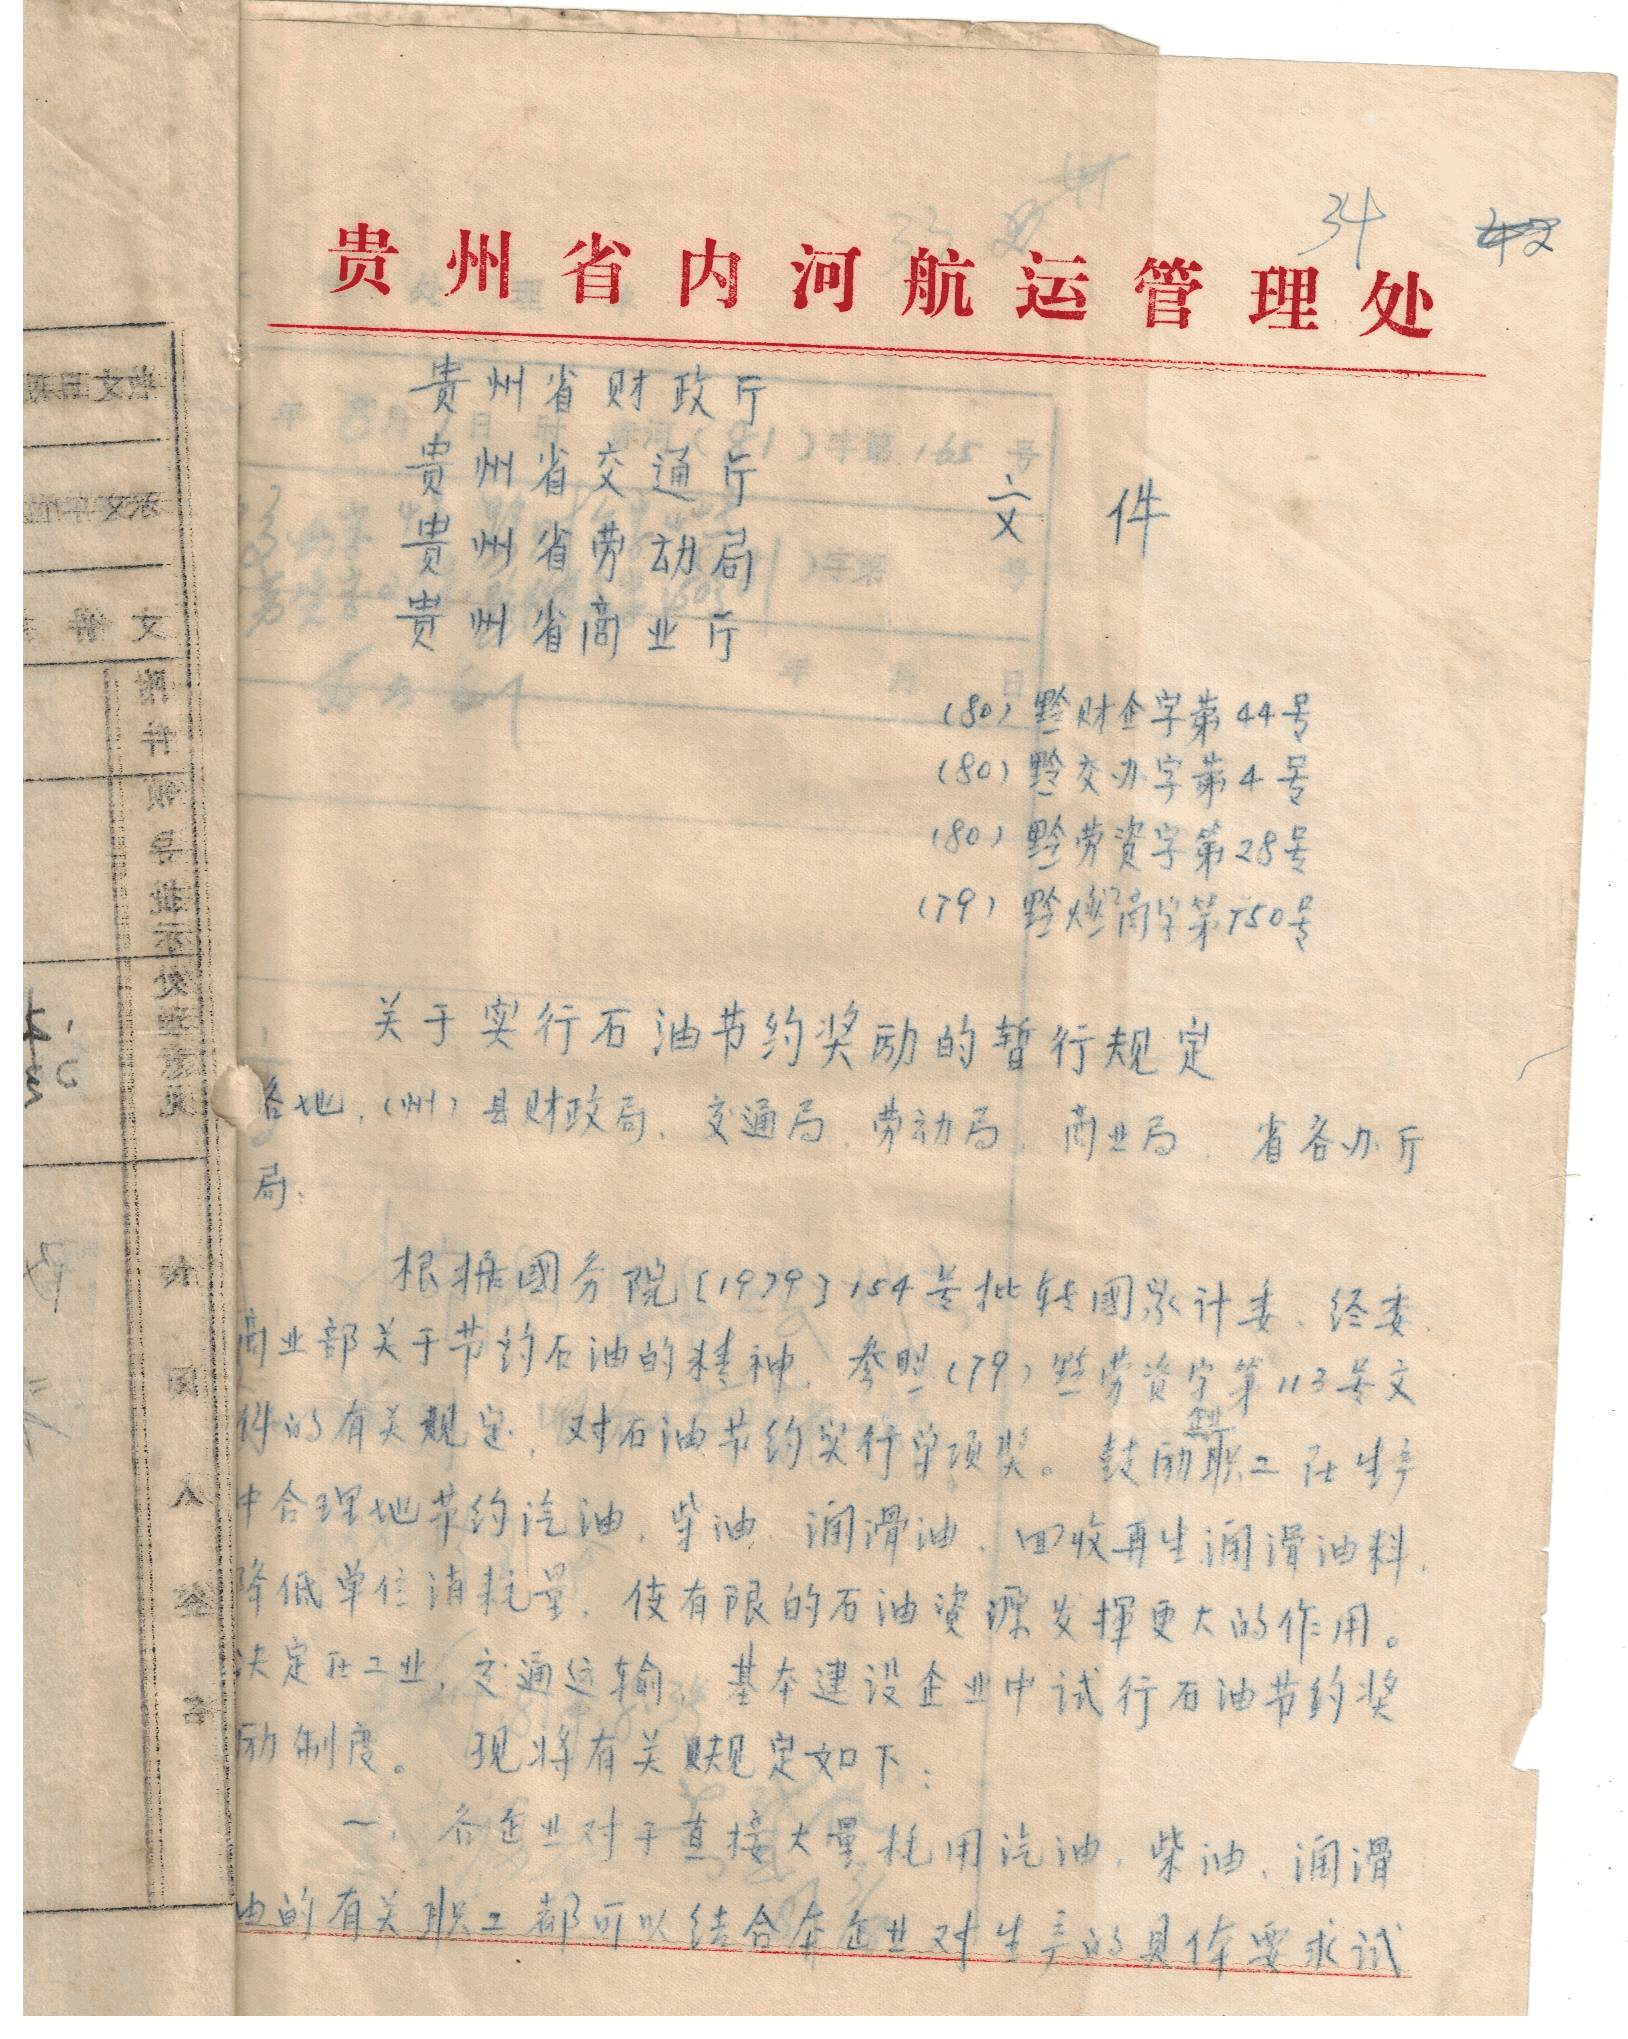 34
贵州省内河航运管理处
贵州省财政厅
贵州省交通厅
贵州省劳动局
贵州省商业厅
文 件
(80)黔财企字第44号
(80)黔交办字第4号
(80)黔劳资字第28号
(79)黔燃商字第750号
关于实行石油节约奖励的暂行规定
各地、(州)县财政局、交通局、劳动局、商业局、省各办厅
局:
根据國务院[1979]154号批转國家计委、经委、
商业部关于节约石油的精神,参照(79)黔劳资字第113号文
件的有关规定,对石油节约实行单项奖。鼓励职工在生产
中合理地节约汽油、柴油、润滑油、回收再生润滑油料,
降低单位消耗量,使有限的石油资源发挥更大的作用。
决定在工业,交通运输、基本建设企业中试行石油节约奖
励制度。现将有关规定如下:
一、各企业对于直接大量耗用汽油、柴油、润滑
油的有关职工都可以结合本企业对生产的具体要求试